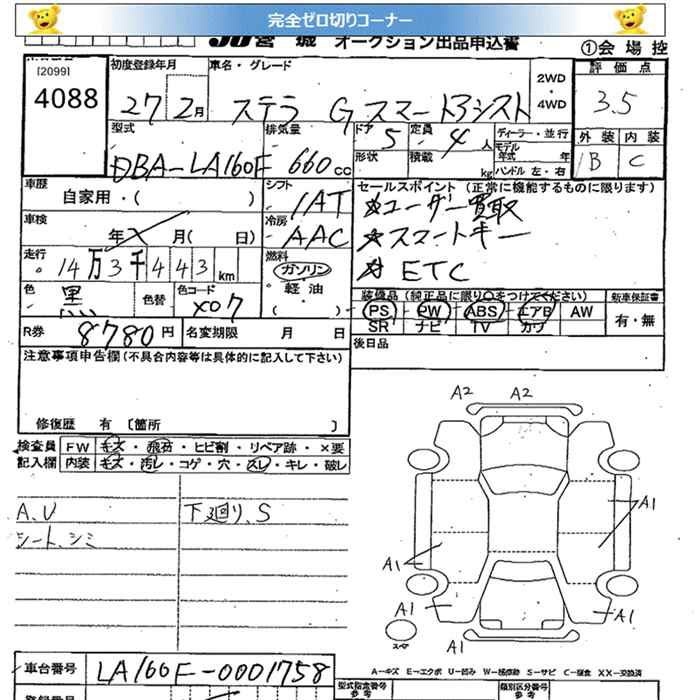 完全ゼロ切りコーナー
JU宮城 オークション出品申込書
①会場控
[2099]
4088
初度登録年月
27 2月
車名・グレード
ステラ Gスマートアシスト
2WD
・
4WD
評価点
3.5
外装 内装
B C
型式
DBA-LA160F
排気量
660cc
ドア 5
定員 4人
形状
積載 kg
ディーラー・並行
モデル年式 年
ハンドル 左・右
車歴
自家用・( )
シフト
IAT
セールスポイント (正常に機能するものに限ります)
☆ユーザー買取
☆スマートキー
☆ETC
車検
年 月( 日)
冷房
AAC
走行
14万3千443km
燃料
ガソリン
軽油
( )
色
黒
色替
色コード
X07
装備品(純正品に限り○をつけてください)
PS - PW - ABS - エアB AW
SR ナビ TV カワ
新車保証書
有・無
R券
8780円
名変期限 月 日
後日品
注意事項申告欄(不具合内容等は具体的に記入して下さい)
修復歴 有 〔箇所 〕
検査員記入欄
FW キズ・飛石・ヒビ割・リペア跡・×要
内装 キズ・汚レ・コゲ・穴・スレ・キレ・破レ
A、U
シート、シミ
下廻り、S
A2 A2
A1
A1
A1
A1
A1
スペア
A…キズ E…エクボ U…凹み W…補修跡 S…サビ C…腐食 XX…交換済
車台番号
LA160F-0001758
型式指定番号
参考
類別区分番号
参考
登録番号